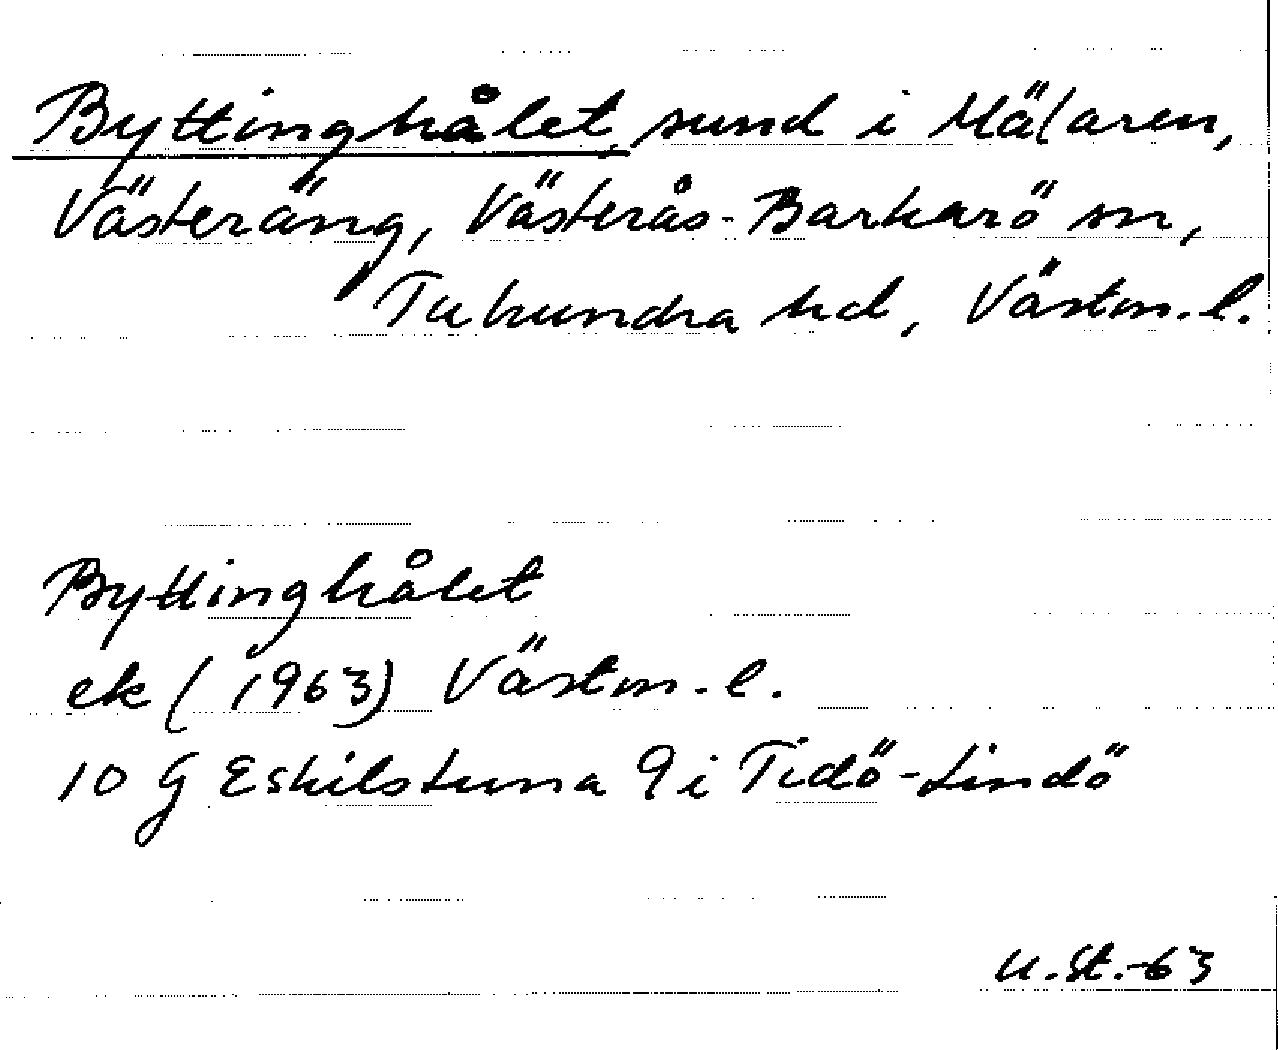 Byttinghålet, sund i Mälaren,
Västeräng, Västerås-Barkarö sn,
Tuhundra hd, Västm. l.
Byttinghålet
ek (1963) Västm. l.
10 G Eskilstuna 9 i Tidö-Lindö
U.St.-63